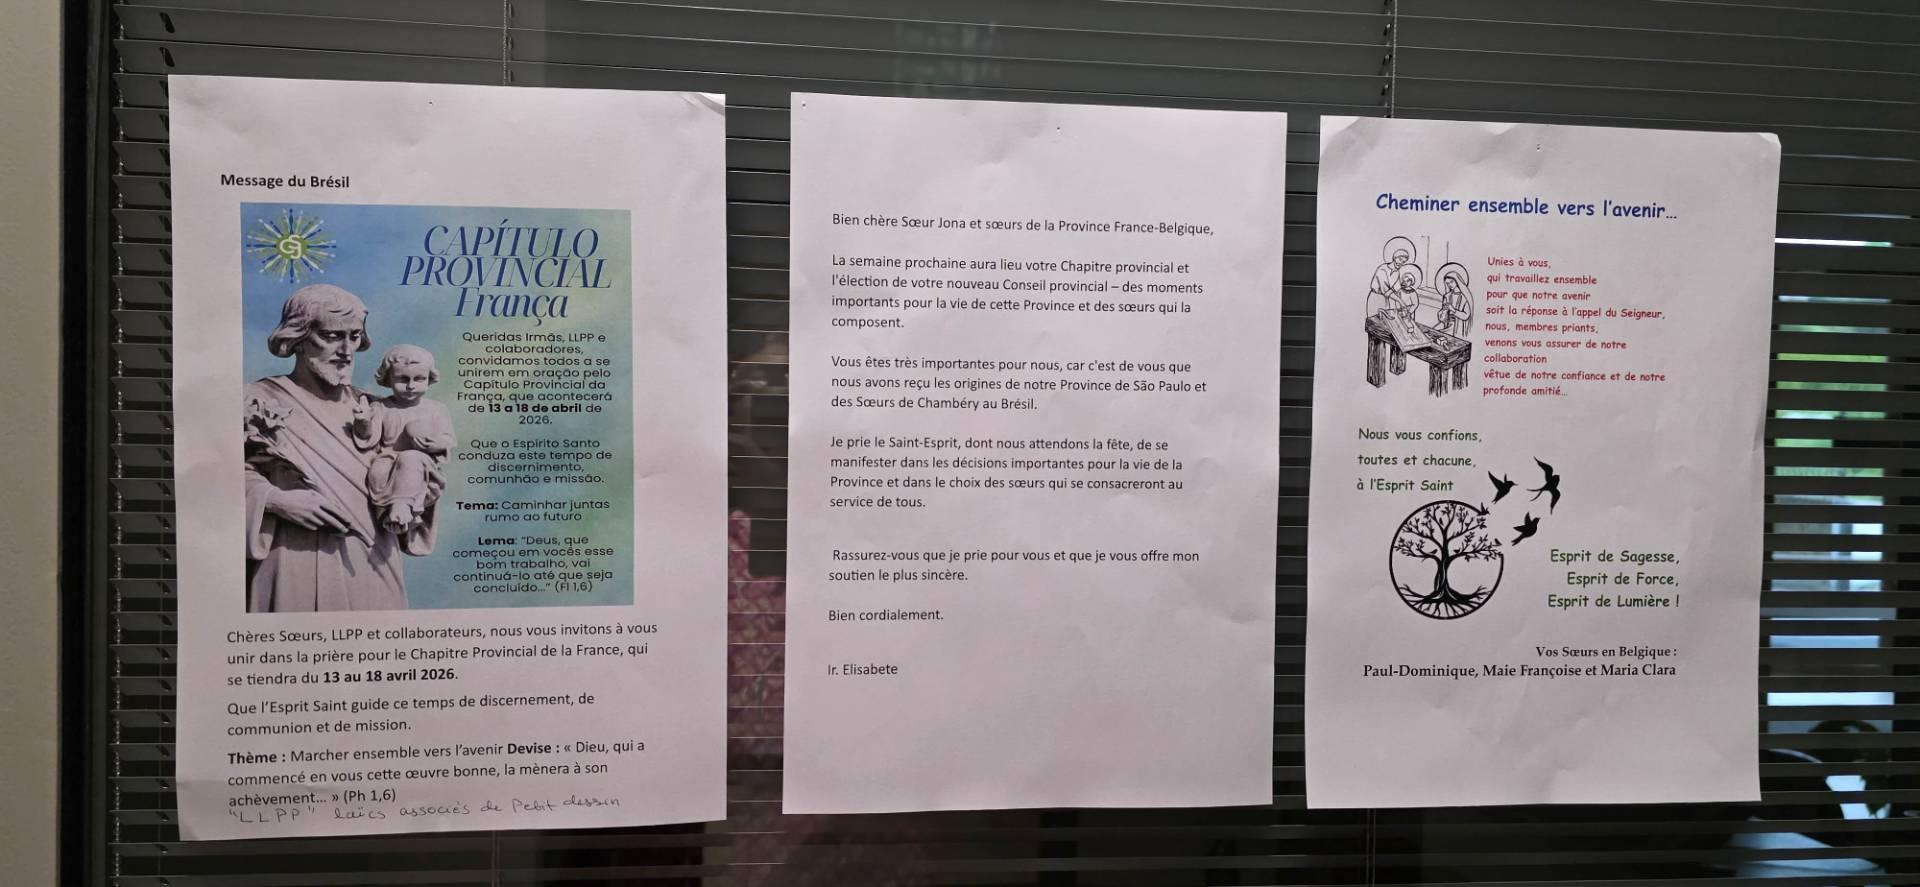 Message du Brésil
CSJ
CAPÍTULO
PROVINCIAL
França
Queridas Irmãs, LLPP e
colaboradores,
convidamos todos a se
unirem em oração pelo
Capítulo Provincial da
França, que acontecerá
de 13 a 18 de abril de
2026.
Que o Espírito Santo
conduza este tempo de
discernimento,
comunhão e missão.
Tema: Caminhar juntas
rumo ao futuro
Lema: “Deus, que
começou em vocês esse
bom trabalho, vai
continuá-lo até que seja
concluído...” (Fl 1,6)
Chères Sœurs, LLPP et collaborateurs, nous vous invitons à vous
unir dans la prière pour le Chapitre Provincial de la France, qui
se tiendra du 13 au 18 avril 2026.
Que l’Esprit Saint guide ce temps de discernement, de
communion et de mission.
Thème : Marcher ensemble vers l’avenir Devise : « Dieu, qui a
commencé en vous cette œuvre bonne, la mènera à son
achèvement... » (Ph 1,6)
"LLPP" laïcs associés de Petit dessin
Bien chère Sœur Jona et sœurs de la Province France-Belgique,
La semaine prochaine aura lieu votre Chapitre provincial et
l'élection de votre nouveau Conseil provincial – des moments
importants pour la vie de cette Province et des sœurs qui la
composent.
Vous êtes très importantes pour nous, car c'est de vous que
nous avons reçu les origines de notre Province de São Paulo et
des Sœurs de Chambéry au Brésil.
Je prie le Saint-Esprit, dont nous attendons la fête, de se
manifester dans les décisions importantes pour la vie de la
Province et dans le choix des sœurs qui se consacreront au
service de tous.
Rassurez-vous que je prie pour vous et que je vous offre mon
soutien le plus sincère.
Bien cordialement.
Ir. Elisabete
Cheminer ensemble vers l’avenir...
Unies à vous,
qui travaillez ensemble
pour que notre avenir
soit la réponse à l’appel du Seigneur,
nous, membres priants,
venons vous assurer de notre
collaboration
vêtue de notre confiance et de notre
profonde amitié...
Nous vous confions,
toutes et chacune,
à l’Esprit Saint
Esprit de Sagesse,
Esprit de Force,
Esprit de Lumière !
Vos Sœurs en Belgique :
Paul-Dominique, Maie Françoise et Maria Clara